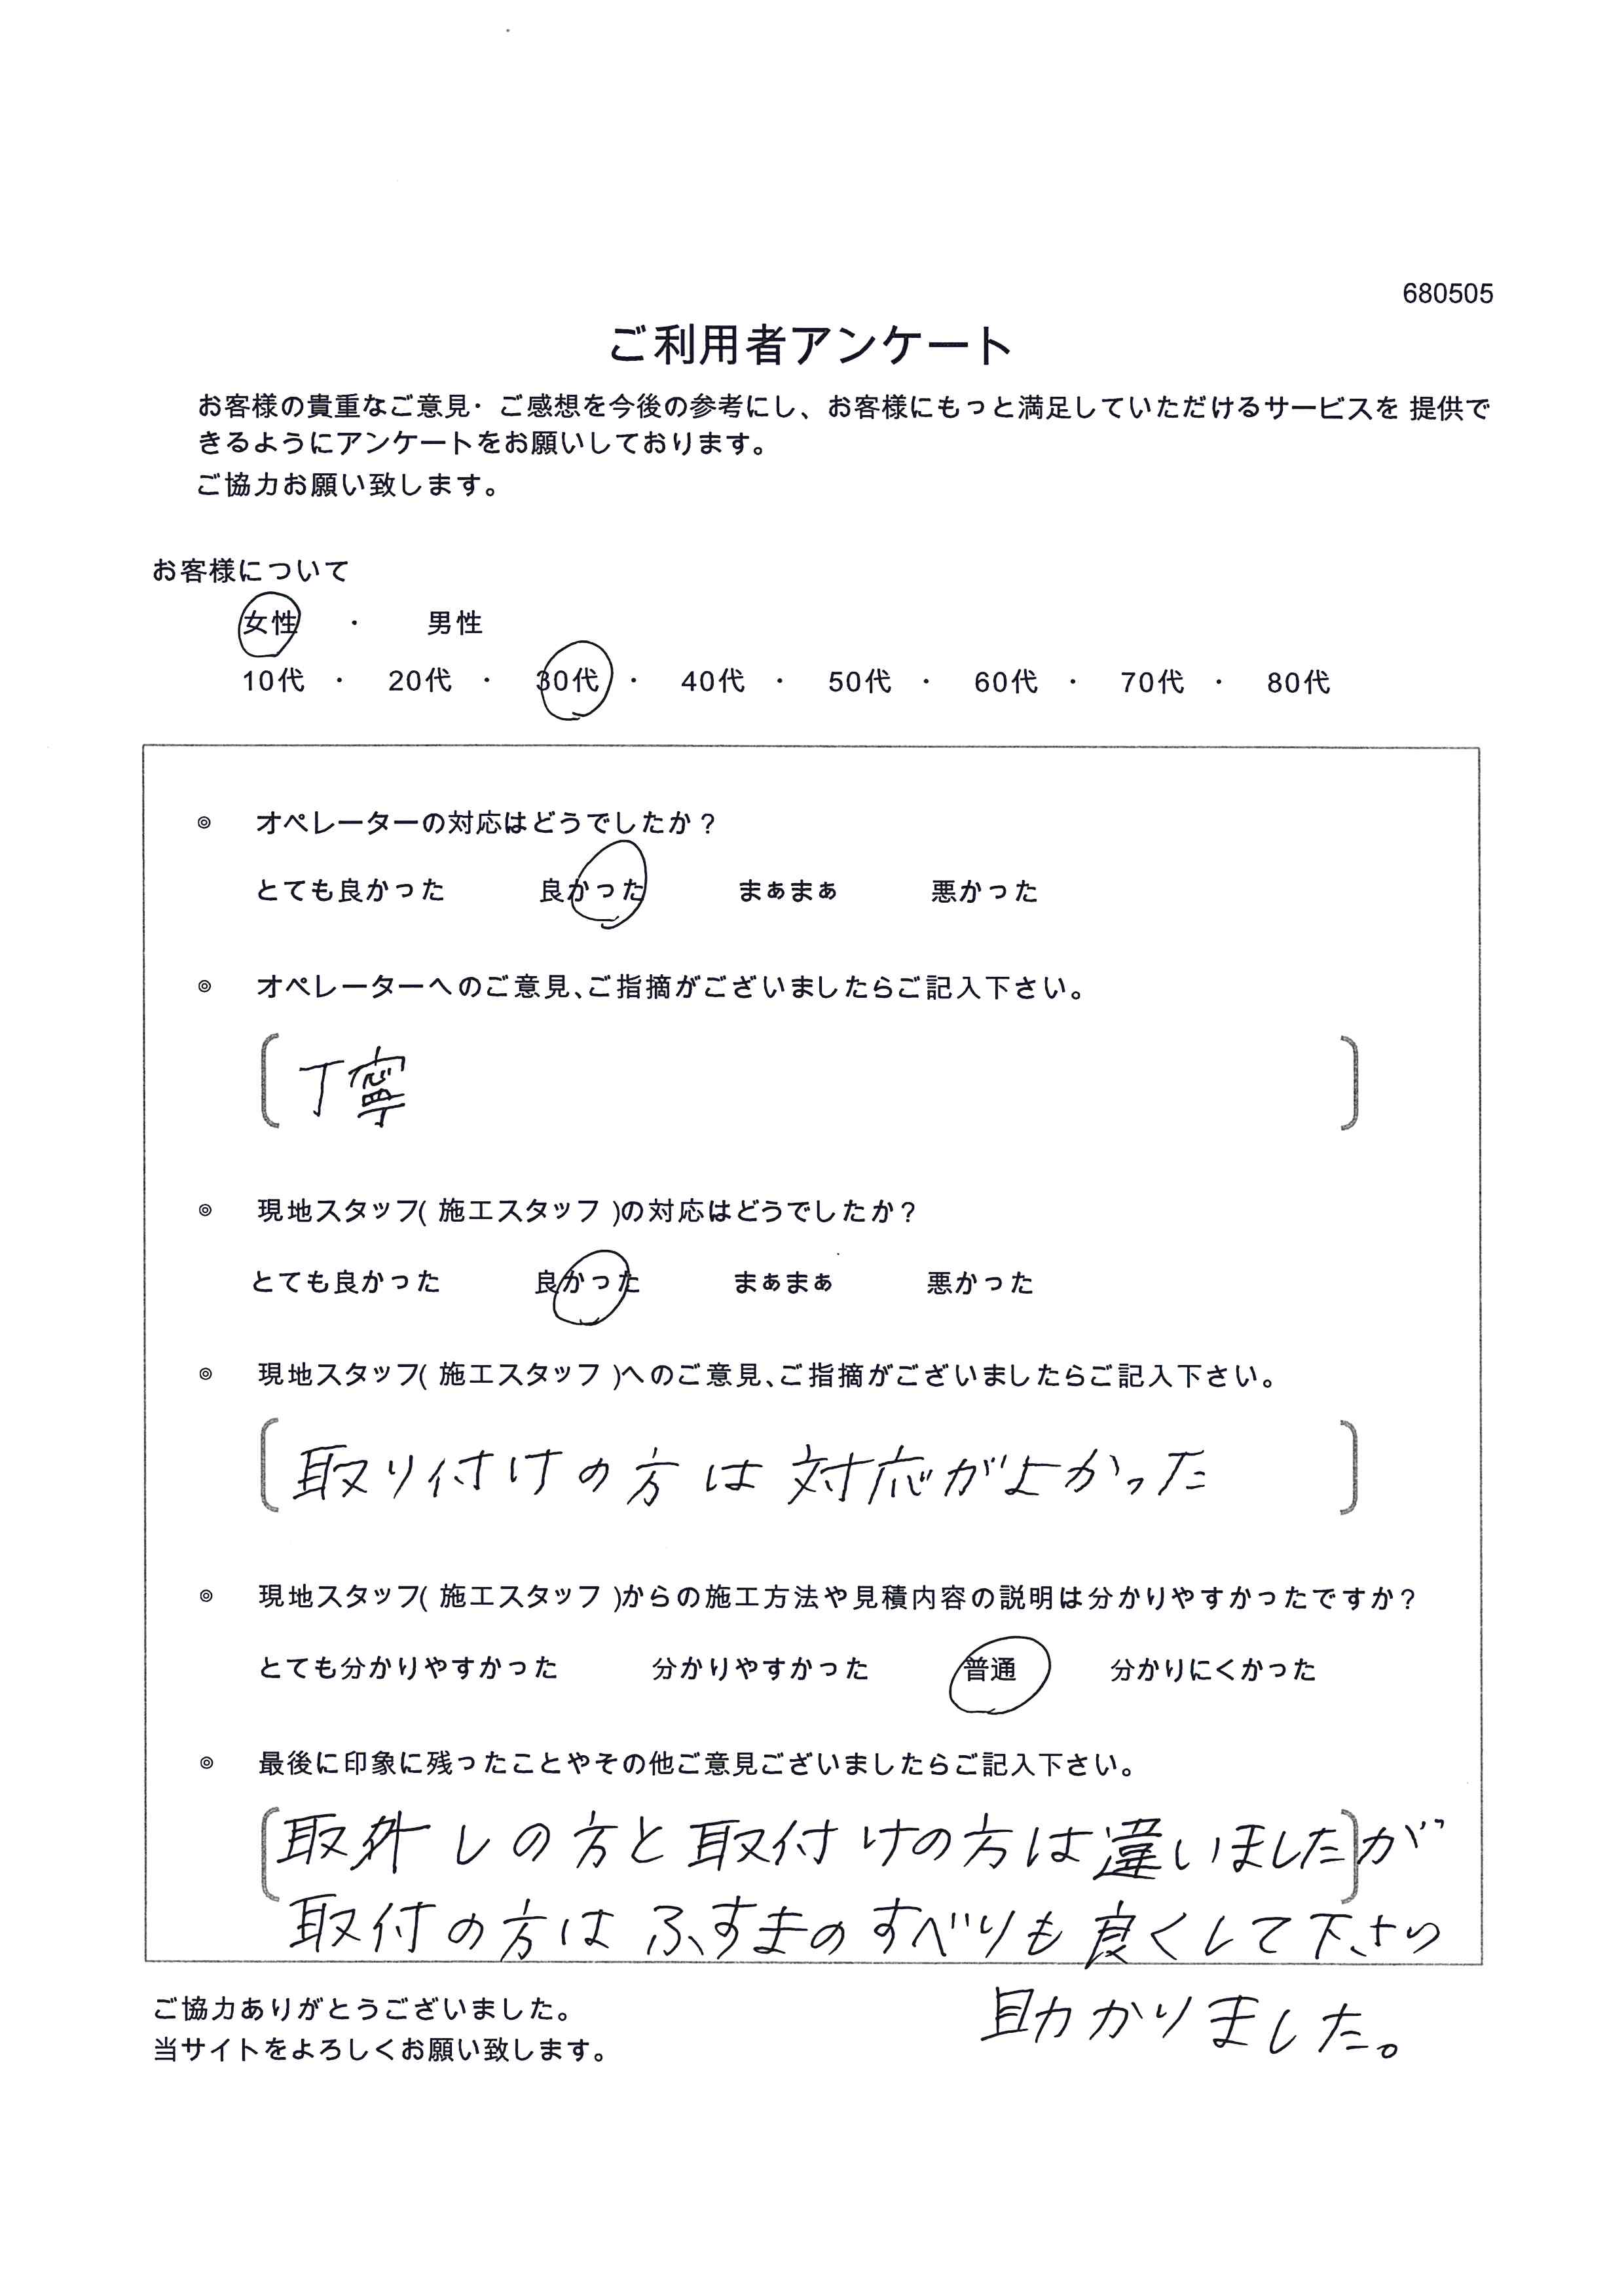 680505
ご利用者アンケート
お客様の貴重なご意見・ご感想を今後の参考にし、お客様にもっと満足していただけるサービスを 提供で
きるようにアンケートをお願いしております。
ご協力お願い致します。
お客様について
女性 ・ 男性
10代 ・ 20代 ・ 30代 ・ 40代 ・ 50代 ・ 60代 ・ 70代 ・ 80代
◎ オペレーターの対応はどうでしたか？
とても良かった 良かった まぁまぁ 悪かった
◎ オペレーターへのご意見、ご指摘がございましたらご記入下さい。
丁寧
◎ 現地スタッフ( 施工スタッフ )の対応はどうでしたか？
とても良かった 良かった まぁまぁ 悪かった
◎ 現地スタッフ( 施工スタッフ )へのご意見、ご指摘がございましたらご記入下さい。
取り付けの方は対応がよかった
◎ 現地スタッフ( 施工スタッフ )からの施工方法や見積内容の説明は分かりやすかったですか？
とても分かりやすかった 分かりやすかった 普通 分かりにくかった
◎ 最後に印象に残ったことやその他ご意見ございましたらご記入下さい。
取外しの方と取付けの方は違いましたが
取付の方はふすまのすべりも良くして下さり
助かりました。
ご協力ありがとうございました。
当サイトをよろしくお願い致します。